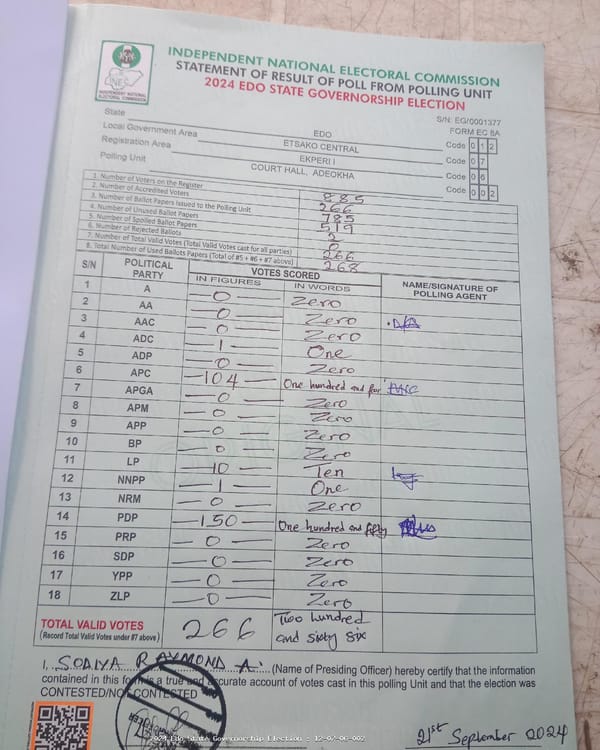 INDEPENDENT NATIONAL ELECTORAL COMMISSION
STATEMENT OF RESULT OF POLL FROM POLLING UNIT
2024 EDO STATE GOVERNORSHIP ELECTION
INEC
INDEPENDENT NATIONAL
ELECTORAL COMMISSION
S/N: EG/0001377
FORM EC 8A
State EDO Code 012
Local Government Area ETSAKO CENTRAL Code 07
Registration Area EKPERI I Code 06
Polling Unit COURT HALL, ADEOKHA Code 002
1. Number of Voters on the Register 885
2. Number of Accredited Voters 266
3. Number of Ballot Papers Issued to the Polling Unit 785
4. Number of Unused Ballot Papers 519
5. Number of Spoiled Ballot Papers 2
6. Number of Rejected Ballots 0
7. Number of Total Valid Votes (Total Valid Votes cast for all parties) 266
8. Total Number of Used Ballots Papers (Total of #5 + #6 + #7 above) 268
S/N POLITICAL PARTY VOTES SCORED NAME/SIGNATURE OF POLLING AGENT
IN FIGURES IN WORDS
1 A 0 Zero
2 AA 0 Zero
3 AAC 0 Zero
4 ADC 1 One
5 ADP 0 Zero
6 APC 104 One hundred and four
7 APGA 0 Zero
8 APM 0 Zero
9 APP 0 Zero
10 BP 0 Zero
11 LP 10 Ten
12 NNPP 1 One
13 NRM 0 Zero
14 PDP 150 One hundred and fifty
15 PRP 0 Zero
16 SDP 0 Zero
17 YPP 0 Zero
18 ZLP 0 Zero
TOTAL VALID VOTES 266 Two hundred
(Record Total Valid Votes under #7 above) and sixty six
I, SODIYA RAYMOND A. (Name of Presiding Officer) hereby certify that the information
contained in this form is a true and accurate account of votes cast in this polling Unit and that the election was
CONTESTED/NOT CONTESTED
2024 Edo State Governorship Election - 12-07-06-002
21st September 2024